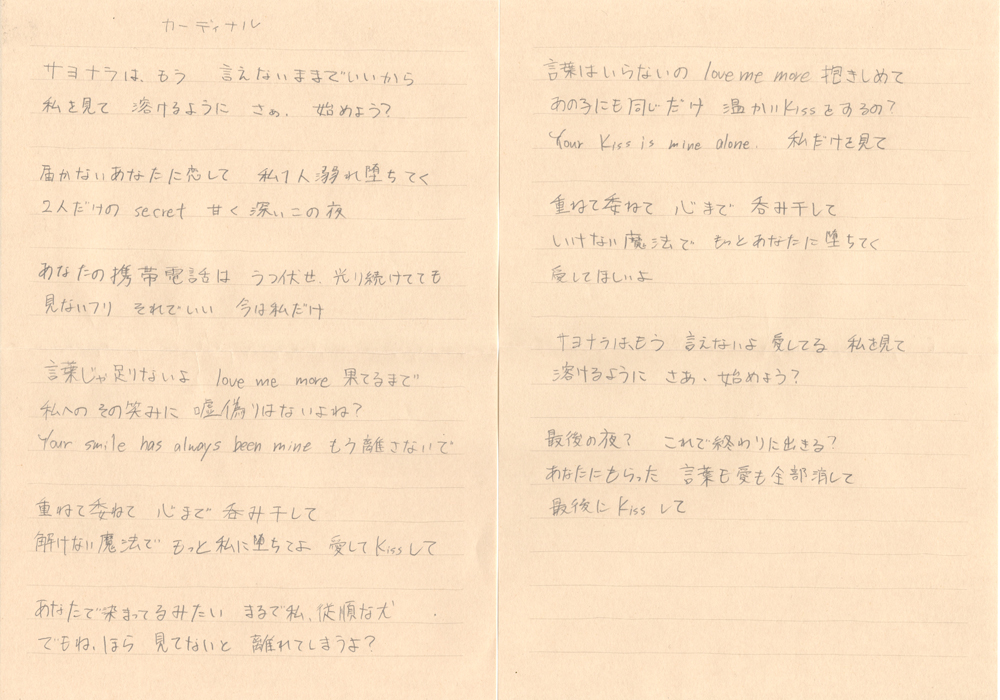 カーディナル
サヨナラは、もう 言えないままでいいから
私を見て 溶けるように さぁ、始めよう?
届かないあなたに恋して 私1人溺れ堕ちてく
2人だけの secret 甘く深いこの夜
あなたの携帯電話は うつ伏せ、光り続けてても
見ないフリ それでいい 今は私だけ
言葉じゃ足りないよ love me more 果てるまで
私への その笑みに 嘘偽りはないよね?
Your smile has always been mine もう離さないで
重ねて委ねて 心まで 呑み干して
解けない魔法で もっと私に堕ちてよ 愛して Kiss して
あなたで染まってるみたい まるで私、従順な犬
でもね、ほら 見てないと 離れてしまうよ?
言葉はいらないの love me more 抱きしめて
あの子にも同じだけ 温かいKissをするの?
Your Kiss is mine alone. 私だけを見て
重ねて委ねて 心まで 呑み干して
いけない魔法で もっとあなたに堕ちてく
愛してほしいよ
サヨナラは、もう 言えないよ 愛してる 私を見て
溶けるように さあ、始めよう?
最後の夜? これで終わりに出きる?
あなたにもらった 言葉も愛も全部消して
最後に Kiss して